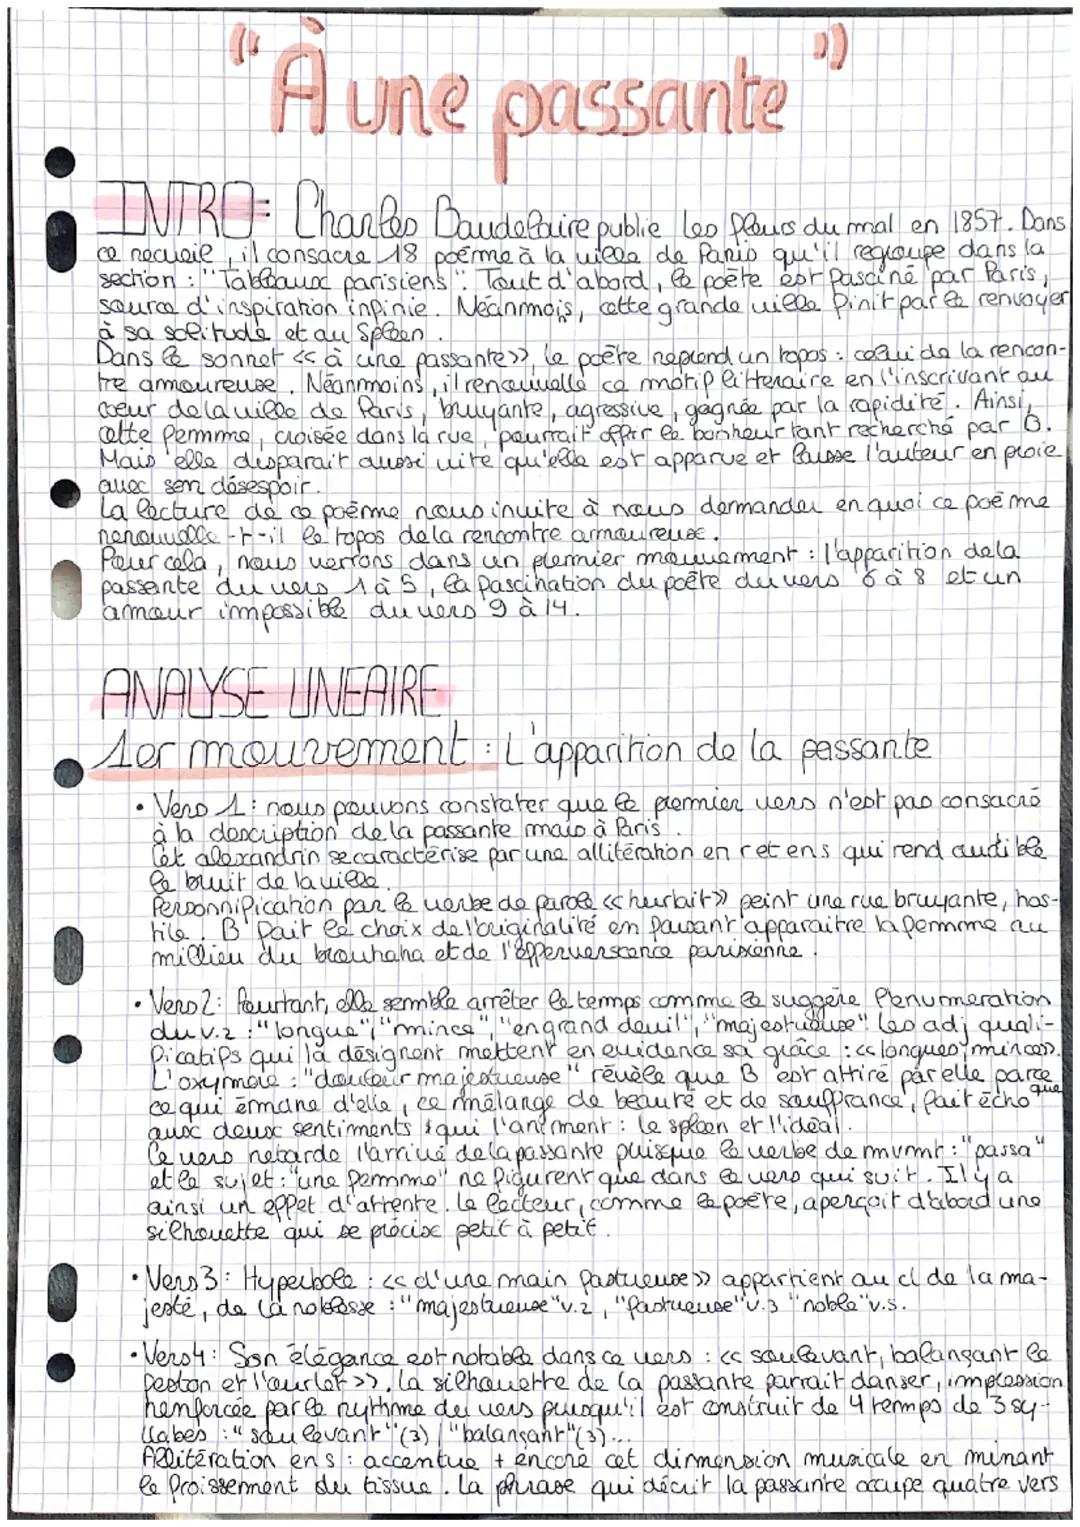 "À une passante"
INTRO: Charles Baudelaire publie les fleurs du mal en 1857. Dans
ce recueie, il consacre 18 poème à la ville de Paris qu'il regroupe dans la
section : "Tableaux parisiens". Tout d'abord, le poète est fasciné par Paris,
source d'inspiration infinie. Néanmois, cette grande ville finit par le renvoyer
à sa solitude et au Spleen.
Dans le sonnet << à une passante>>, le poète reprend un topos : celui de la rencon-
tre amoureuse. Néanmoins, il renouvelle ce motif litteraire en l'inscrivant au
coeur de la ville de Paris, bruyante, agressive, gagnée par la rapidité. Ainsi,
cette femme, croisée dans la rue, pourrait offrir le bonheur tant recherché par B.
Mais elle disparait aussi vite qu'elle est apparue et laisse l'auteur en proie
avec son désespoir.
La lecture de ce poème nous invite à nous demander en quoi ce poème
renouvelle-t-il le topos de la rencontre amoureuse.
Pour cela, nous verrons dans un premier mouvement : l'apparition de la
passante du vers 1 à 5, la fascination du poète du vers 6 à 8 et un
amour impossible du vers 9 à 14.
ANALYSE LINEAIRE
1er mouvement : L'apparition de la passante
• Vers 1 : nous pouvons constater que le premier vers n'est pas consacré
à la description de la passante mais à Paris.
Cet alexandrin se caractérise par une allitération en r et en s qui rend audible
le bruit de la ville.
Personnification par le verbe de parole << hurlait>> peint une rue bruyante, hos-
tile. B fait le choix de l'originalité en faisant apparaitre la femme au
millieu du brouhaha et de l'effervescence parisienne.
• Vers 2 : Pourtant, elle semble arrêter le temps comme le suggère l'enumeration
du v.2 : "longue", "mince", "en grand deuil", "majestueuse". Les adj quali-
ficatifs qui la désignent mettent en evidence sa grâce : <<longues, minces>>.
L'oxymore : "douleur majestueuse" révèle que B est attiré par elle parce que
ce qui émane d'elle, ce mélange de beauté et de souffrance, fait écho
aux deux sentiments qui l'animent : le spleen et l'idéal.
Ce vers retarde l'arrivé de la passante puisque le verbe de mvmt : "passa"
et le sujet : "une femme" ne figurent que dans le vers qui suit. Il y a
ainsi un effet d'attente. Le lecteur, comme le poète, aperçoit d'abord une
silhouette qui se précise petit à petit.
• Vers 3 : Hyperbole : << d'une main fastueuse>> appartient au cl de la ma-
jesté, de la noblesse : "majestueuse" v.2, "fastueuse" v.3 "noble" v.5.
• Vers 4 : Son élégance est notable dans ce vers : << soulevant, balançant le
feston et l'ourlet>>. La silhouette de la passante parrait danser, impression
renforcée par le rythme du vers puisqu'il est construit de 4 temps de 3 sy-
llabes : "soulevant" (3), "balançant" (3)...
Allitération en s : accentue + encore cet dimension musicale en mimant
le froissement du tissue. La phrase qui décrit la passante occupe quatre vers